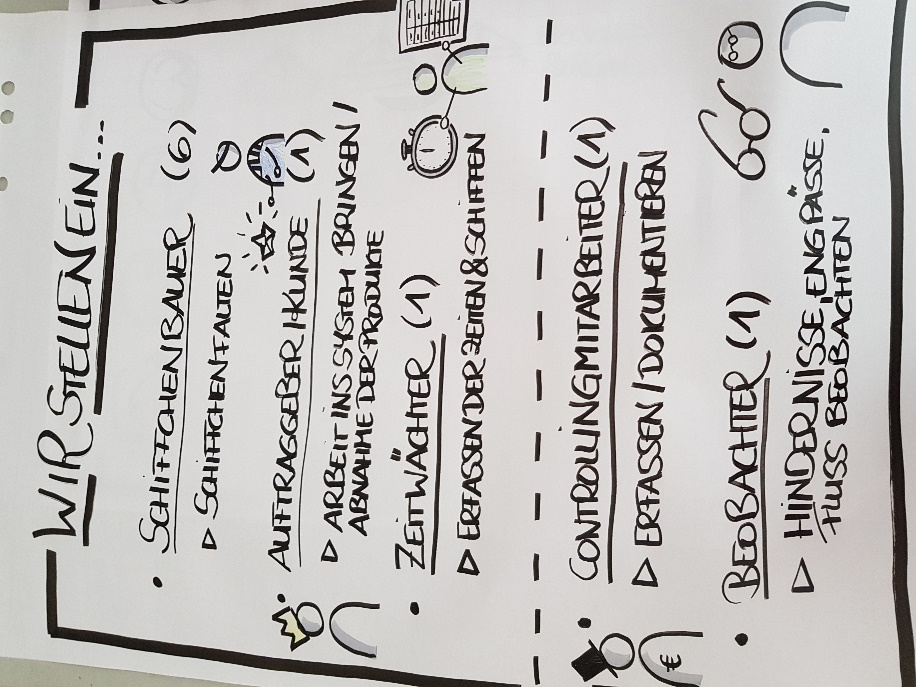 WIR STELLEN EIN...
• SCHIFFCHENBAUER (6)
▷ SCHIFFCHEN FALTEN
• AUFTRAGGEBER / KUNDE (1)
▷ ARBEIT INS SYSTEM BRINGEN /
ABNAHME DER PRODUKTE
• ZEITWÄCHTER (1)
▷ ERFASSEN DER ZEITEN & SCHIFFEN
• CONTROLLINGMITARBEITER (1)
▷ ERFASSEN / DOKUMENTIEREN
€
• BEOBACHTER (1)
▷ HINDERNISSE, ENGPÄSSE,
FLUSS BEOBACHTEN